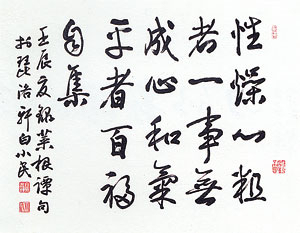 性燥心粗
者一事無
成心和氣
平者百福
自集
壬辰夏錄菜根譚句
於琵浯軒白小民